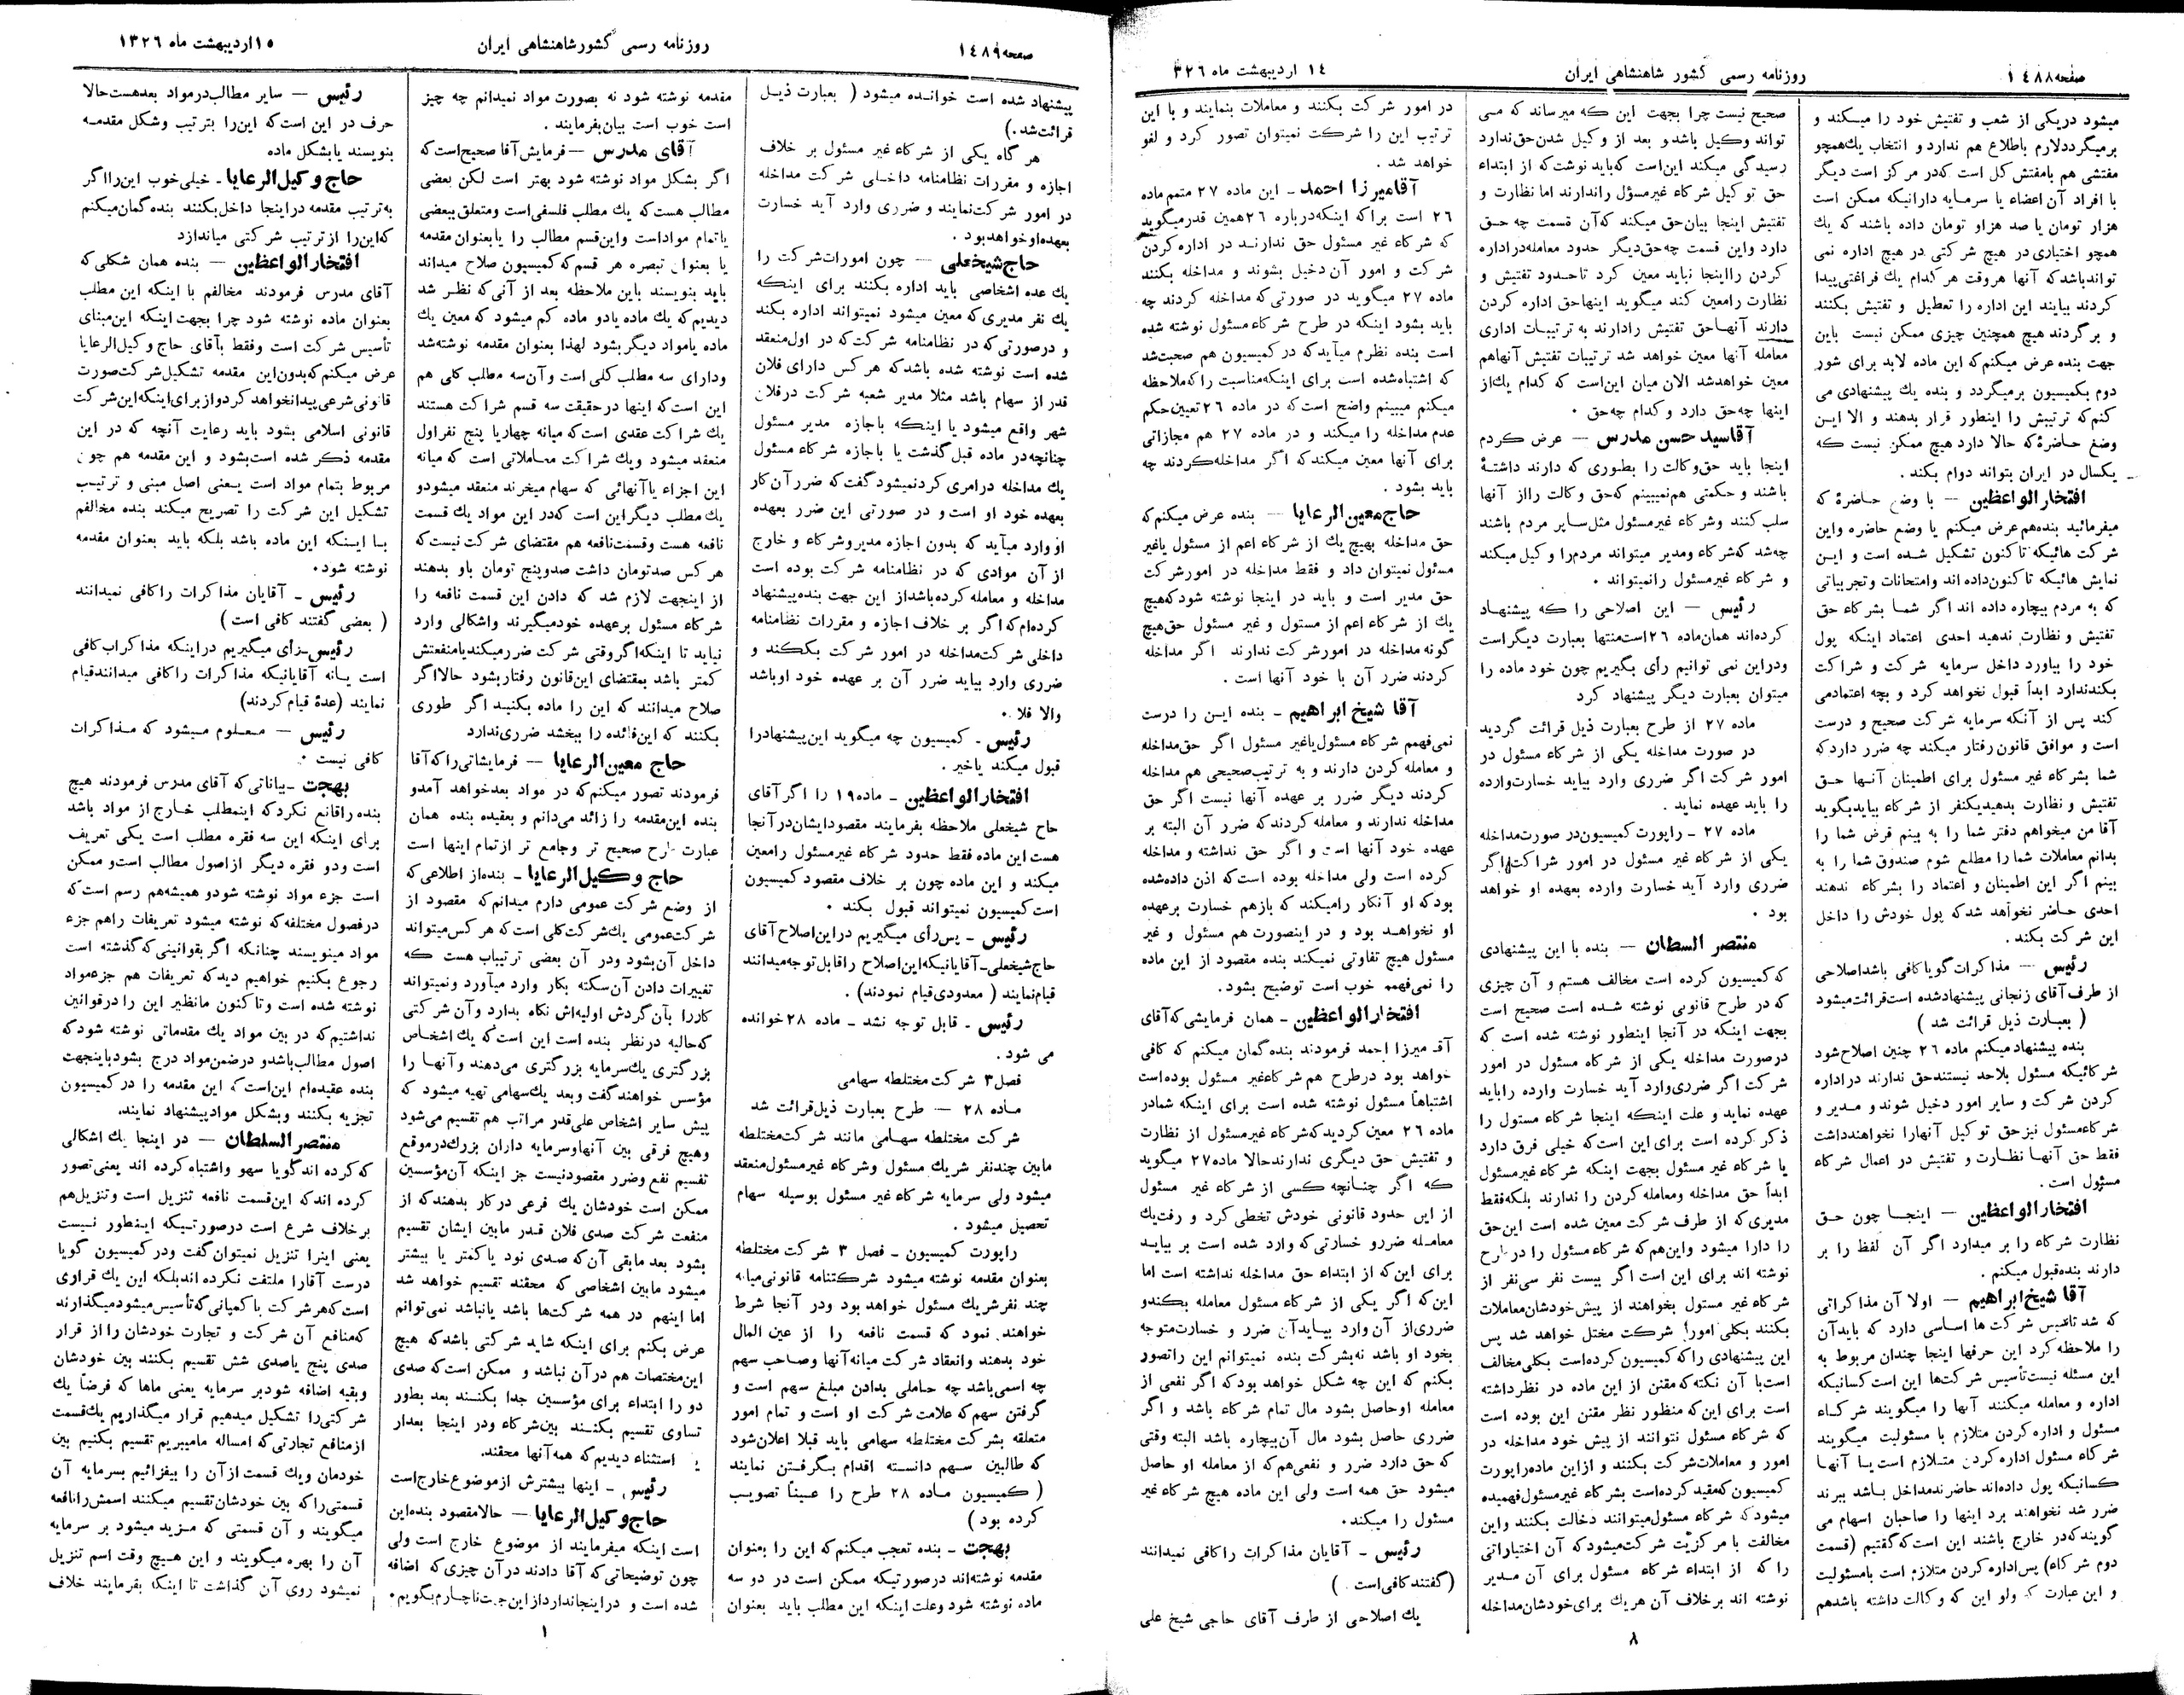 صفحه ۱٤۸۸
روزنامه رسمی کشور شاهنشاهی ایران
۱٤ اردیبهشت ماه ۳۲٦
میشود دریکی از شعب و تفتیش خود را میکند و
برمیگرددلازم باطلاع هم ندارد و انتخاب یك‌همچو
مفتشی هم بامفتش کل است که‌در مرکز است دیگر
با افراد آن اعضاء یا سرمایه دارانیکه ممکن است
هزار تومان یا صد هزاو تومان داده باشند که یك
همچو اختیاری در هیچ شرکتی در هیچ اداره نمی
تواندباشد‌که آنها هروقت هرکدام یك فراغتی‌پیدا
کردند بیایند این اداره را تعطیل و تفتیش بکنند
و برگردند هیچ همچنین چیزی ممکن نیست باین
جهت بنده عرض میکنم‌که این ماده لابد برای شور
دوم بکمیسیون برمیگردد و بنده یك پیشنهادی می
کنم‌که ترتیبش را اینطور قرار بدهند و الا ایـن
وضع حاضرۀ‌که حالا دارد هیچ ممکن نیست که
یکسال در ایران بتواند دوام بکند .
افتخار‌الواعظین — با وضع حـاضرۀ که
میفرمائید بنده‌هم‌عرض میکنم یا وضع حاضره واین
شرکت هائیکه تاکنون تشکیل شـده است و ایـن
نمایش هائیکه تاکنون‌داده اند وامتحانات وتجربیاتی
که به مردم بیچاره داده اند اگر شما بشرکاء حق
تفتیش و نظارت ندهید احدی اعتماد اینکه پول
خود را بیاورد داخل سرمایه شرکت و شراکت
بکند‌ندارد ابداً قبول نخواهد کرد و بچه اعتمادمی
کند پس از آنکه سرمایه شرکت صحیح و درست
است و موافق قانون رفتار میکند چه ضرر دارد‌که
شما بشرکاء غیر مسئول برای اطمینان آنـها حـق
تفتیش و نظارت بدهیدیکنفر از شرکاء بیاید‌بگوید
آقا من میخواهم دفتر شما را به بینم قرض شما را
بدانم معاملات شما را مطلع شوم صندوق شما را به
بینم اگر این اطمینان و اعتماد را بشرکاء ندهند
احدی حـاضر نخواهد شد‌که پول خودش را داخل
این شرکت بکند .
رئیس — مذاکرات گویاکافی باشداصلاحی
از طرف آقای زنجانی پیشنهادشده است‌قرائت‌میشود
( بعبارت ذیل قرائت شد )
بنده پیشنهاد میکنم ماده ۲٦ چنین اصلاح‌شود
شرکائیکه مسئول بلاحد نیستندحق ندارند دراداره
کردن شرکت و سایر امور دخیل شوند و مـدیر و
شرکاءمسئول نیز‌حق توکیل آنهارا نخواهندداشت
فقط حق آنهـا نظـارت و تفتیش در اعمال شرکاء
مسؤل است .
افتخارالواعظین — اینجـا چون حـق
نظارت شرکاء را بر میدارد اگر آن لفظ را بر
دارند بنده‌قبول میکنم .
آقا شیخ‌ابراهیم — اولا آن مذاکراتی
که شد تأسیس شرکت ها اساسی دارد که بایدآن
را ملاحظه‌کرد این حرفها اینجا چندان مربوط به
این مسئله نیست‌تأسیس شرکت‌ها این است‌کسانیکه
اداره و معامله میکنند آنها را میگویند شرکـاء
مسئول و اداره‌کردن متلازم با مسئولیت میگویند
شرکاء مسئول اداره‌کردن متـلازم است یـا آنهـا
کسانیکه پول داده‌اند حاضرندمداخل بـاشد ببرند
ضرر شد نخواهند برد اینها را صاحبان اسهام می
گویند‌که‌در خارج باشند این است‌که‌گفتیم (قسمت
دوم شرکاء) پس‌اداره‌کردن متلازم است بامسئولیت
و این عبارت که ولو این که وکالت داشته باشدهم
صحیح نیست چرا بجهت این که میرساند که مـی
تواند وکیل باشد‌و بعد از وکیل شدن‌حق‌ندارد
رسیدگی میکند این‌است که‌باید نوشت‌که از ابتداء
حق توکیل شرکاء غیرمسؤل راندارند اما نظارت و
تفتیش اینجا بیان‌حق میکند که‌آن قسمت چه حـق
دارد واین قسمت چه‌حق‌دیگر حدود معامله‌دراداره
کردن رااینجا نباید معین کرد تاحـدود تفتیش و
نظارت رامعین کند میگوید اینهاحق اداره کردن
دارند آنهـاحق تفتیش رادارند به ترتیبـات اداری
معامله آنها معین خواهد شد ترتیبات تفتیش آنهاهم
معین خواهدشد الان میان این‌است که کدام یك‌از
اینها چه‌حق دارد وکدام چه‌حق .
آقاسید حسن مدرس — عرض کردم
اینجا باید حق‌وکالت را بطـوری که دارند داشتـۀ
باشند و حکمتی هم‌نمیبینم که‌حق وکالت رااز آنها
سلب کنند وشرکاء غیرمسئول مثل‌سایر مردم باشند
چه‌شد که‌شرکاء ومدیر میتواند مردم‌را وکیل میکند
و شرکاء غیرمسئول رانمیتواند .
رئیس — این اصلاحی را که پیشنهـاد
کرده‌اند همان‌ماده ۲٦است‌منتها بعبارت دیگراست
ودراین نمی توانیم رأی بگیریم چون خود ماده را
میتوان بعبارت دیگر پیشنهاد کرد
ماده ۲۷ از طرح بعبارت ذیل قرائت گردید
در صورت مداخله یکی از شرکاء مسئول در
امور شرکت اگر ضرری وارد بیاید خسارت‌وارده
را باید عهده نماید .
ماده ۲۷ ـ راپورت کمیسیون‌در صورت‌مداخله
یکی از شرکاء غیر مسئول در امور شراکت اگر
ضرری وارد آید خسارت وارده بعهده او خواهد
بود .
منتصر السلطان — بنده با این پیشنهادی
که‌کمیسیون کرده است مخالف هستم و آن چیزی
که در طرح قانونی نوشته شـده است صحیح است
بجهت اینکه در آنجا اینطور نوشته شده است که
درصورت مداخله یکی از شرکاء مسئول در امور
شرکت اگر ضرری‌وارد آید خسارت وارده رابایـد
عهده نماید و علت اینکه اینجا شرکاء مسئول را
ذکر کرده است برای این است‌که خیلی فرق دارد
یا شرکاء غیر مسئول بجهت اینکه شرکاء غیرمسئول
ابداً حق مداخله ومعامله‌کردن را ندارند بلکه‌فقط
مدیری‌که از طرف شرکت معین شده است این‌حق
را دارا میشود واین‌هم‌که شرکاء مسئول را در طرح
نوشته اند برای این است اگر بیست نفر سی‌نفر از
شرکاء غیر مسئول بخواهند از پیش‌خودشان‌معاملات
بکنند بکلی امورا شرکت مختل خواهد شد پس
این پیشنهادی راکه‌کمیسیون کرده‌است بکلی‌مخالف
است‌با آن نکته‌که مقنن از این ماده در نظر‌داشته
است برای این‌که منظور نظر مقنن این بوده است
که شرکاء مسئول نتوانند از پیش خود مداخله در
امور و معاملات‌شرکت بکنند و ازاین ماده‌راپورت
کمیسیون که‌مقید کرده‌است بشرکاء غیرمسئول‌فهمیده
میشود‌که شرکاء مسئول‌میتوانند دخالت بکنند واین
مخالفت با مرکزیّت شرکت‌میشود‌که آن اختیاراتی
را‌که از ابتداء شرکاء مسئول برای آن مـدیر
نوشته اند برخلاف آن هریك برای‌خودشان‌مداخله
در امور شرکت بکنند و معاملات بنمایند و با این
ترتیب این را شرکت نمیتوان تصور کرد و لغو
خواهد شد .
آقامیرزا احمد ـ این ماده ۲۷ متمم‌ماده
۲٦ است براکه اینکه‌درباره ۲٦همین قدرمیگوید
که شرکاء غیر مسئول حق ندارنـد در اداره‌کردن
شرکت و امور آن دخیل بشوند و مداخله بکنند
ماده ۲۷ میگوید در صورتی‌که مداخله کردند چه
باید بشود اینکه در طرح شرکاءمسئول نوشته شده
است بنده نظرم میآید‌که در کمیسیون هم صحبت‌شد
که اشتباه‌شده است برای اینکه‌مناسبت را‌که‌ملاحظه
میکنم میبینم واضح است‌که در ماده ۲٦ تعیین‌حکم
عدم مداخله را میکند و در ماده ۲۷ هم مجازاتی
برای آنها معین میکند‌که اگر مداخله‌کردند چه
باید بشود .
حاج‌معین‌الرعایا — بنده عرض میکنم‌که
حق مداخله بهیچ یك از شرکاء اعم از مسئول یاغیر
مسئول نمیتوان داد و فقط مداخله در امورشرکت
حق مدیر است و باید در اینجا نوشته شود‌که‌هیچ
یك از شرکاء اعم از مسئول و غیر مسئول حق‌هیچ
گونه مداخله در امورشرکت ندارند اگر مداخله
کردند ضرر آن با خود آنها است .
آقا شیخ ابراهیم ـ بنده ایـن را درست
نمی‌فهمم شرکاء مسئول‌یاغیر مسئول اگر حق‌مداخله
و معامله کردن دارند و به ترتیب‌صحیحی هم مداخله
کردند دیگر ضرر بر عهده آنها نیست اگر حق
مداخله ندارند و معامله کردند‌که ضرر آن البته بر
عهده خود آنها است و اگر حق نداشته و مداخله
کرده است ولی مداخله بوده است‌که اذن داده‌شده
بود‌که او آنکار رامیکند که بازهم خسارت برعهده
او نخواهـد بود و در اینصورت هم مسئول و غیر
مسئول هیچ تفاوتی نمیکند بنده مقصود از این ماده
را نمی‌فهمم خوب است توضیح بشود.
افتخارالواعظین ـ همان فرمایشی‌که‌آقای
آقا میرزا احمد فرمودند بنده‌گمان میکنم که کافی
خواهد بود درطرح هم شرکاءغیر مسئول بوده‌است
اشتباهاً مسئول نوشته شده است برای اینکه شمادر
ماده ۲٦ معین کردید‌که‌شرکاءغیرمسئول از نظارت
و تفتیش حق دیگری ندارندحالا ماده۲۷ میگوید
که اگر چنـانچه کسـی از شرکاء غیر مسئول
از این حدود قانونی خودش تخطی‌کرد و رفت‌یك
معامـله ضررو خسارتی‌که وارد شده است بر بیایـد
برای این‌که از ابتداء حق مداخله نداشته است اما
این‌که اگر یکی از شرکاء مسئول معامله بکندو
ضرری‌از آن وارد بیـاید‌آن ضرر و خسارت‌متوجه
بخود او باشد نه‌بشرکت بنده نمیتوانم این راتصور
بکنم که این چه شکل خواهد بود‌که اگر نفعی از
معامله اوحاصل بشود مال تمام شرکاء باشد و اگر
ضرری حاصل بشود مال آن‌بیچاره باشد البته وقتی
که حق دارد ضرر و نفعی‌هم‌که از معامله او حاصل
میشود حق همه است ولی این ماده هیچ شرکاء غیر
مسئول را میکند.
رئیس ـ آقایان مذاکرات راکافی نمیدانند
(گفتندکافی‌است )
یك اصلاحی از طرف آقای حاجی شیخ علی
۸
صفحه ۱٤۸۹
روزنامه رسمی کشورشاهنشاهی ایران
۱۵اردیبهشت ماه ۱۳۲٦
پیشنهاد شده است خوانـده میشود ( بعبارت ذیـل
قرائت‌شد.)
هر گاه یکی از شرکاء غیر مسئول بر خلاف
اجازه و مقررات نظامنامه داخـلی شرکت مداخله
در امور شرکت‌نمایند و ضرری وارد آید خسارت
بعهده‌اوخواهدبود .
حاج‌شیخعلی — چون امورات‌شرکت را
یك عده اشخاصی باید اداره بکنند برای اینکه
یك نفر مدیری‌که معین میشود نمیتواند اداره بکند
و درصورتی‌که در نظامنامه شرکت‌که در اول‌منعقد
شده است نوشته شده باشد‌که هرکس دارای فلان
قدر از سهام باشد مثلا مدیر شعبه شرکت درفلان
شهر واقع میشود یا اینکه باجازه مدیر مسئول
چنانچه‌در ماده قبل‌گذشت یا باجازه شرکاء مسئول
یك مداخله درامری کردنمیشود گفت‌که ضرر آن‌کار
بعهده خود او است‌و در صورتی این ضرر بعهده
او وارد میآید که بدون اجازه مدیروشرکاء و خارج
از آن موادی که در نظامنامه شرکت بوده است
مداخله و معامله کرده‌باشداز این جهت بنده‌پیشنهاد
کرده‌ام‌که اگر بر خلاف اجازه و مقررات نظامنامه
داخلی شرکت‌مداخله در امور شرکت بکـکند و
ضرری وارد بیاید ضرر آن بر عهده خود اوباشد
والا فلا .
رئیس ـ کمیسیون چه میگوید این‌پیشنهادرا
قبول میکند یاخیر .
افتخارالواعظین ـ ماده۱۹ را اگر آقای
حاج شیخعلی ملاحظه بفرمایند مقصودایشان‌درآنجا
هست‌این ماده فقط حدود شرکاء غیرمسئول رامعین
میکند و این ماده چون بر خلاف مقصود کمیسیون
است‌کمیسیون نمیتواند قبول بکند .
رئیس ـ پس‌رأی میگیریم دراین‌اصلاح‌آقای
حاج‌شیخعلی‌ـ‌آقایانیکه‌این‌اصلاح راقابل‌توجه‌میدانند
قیام‌نمایند ( معدودی‌قیام نمودند) .
رئیس ـ قابل توجه نشد ـ ماده ۲۸خوانده
می شود .
فصل۳ شرکت مختلطه سهامی
مـاده ۲۸ — طرح بعبارت ذیل‌قرائت شد
شرکت مختلطه سهـامی مانند شرکت‌مختلطه
مابین چندنفر شریك مسئول وشرکاء غیرمسئول‌منعقد
میشود ولی سرمایه شرکاء غیر مسئول بوسیله سهام
تحصیل میشود .
راپورت کمیسیون ـ فصل ۳ شرکت مختلطه
بعنوان مقدمه نوشته میشود شرکتنامه قانونی‌میانه
چند نفرشریك مسئول خواهد بود ودر آنجا شرط
خواهند نمود که قسمت نافعه را از عین المال
خود بدهند وانعقاد شرکت میانه‌آنها وصـاحب سهم
چه اسمی‌باشد چه حـاملی بدادن مبلغ سهم است و
گرفتن سهم‌که علامت شرکت او است و تمام امور
متعلقه بشرکت مختلطه سهامی باید قبلا اعلان‌شود
که طالبین سـهم دانستـه اقدام بـگرفتـن نمایند
( کمیسیون مـاده ۲۸ طرح را عـیناً تصویـب
کرده بود )
بهجت ـ بنده تعجب میکنم‌که این را بعنوان
مقدمه نوشته‌اند درصورتیکه ممکن است در دو سه
ماده نوشته شود وعلت اینکه این مطلب باید بعنوان
مقدمه نوشته شود نه بصورت مواد نمیدانم چه چیز
است خوب است بیان‌بفرمایند .
آقای مدرس —فرمایش‌آقا صحیح‌است‌که
اگر بشکل مواد نوشته شود بهتر است لکن بعضی
مطالب هست‌که یك مطلب فلسفی‌است ومتعلق‌ببعضی
یاتمام مواداست واین‌قسم مطالب را یابعنوان مقدمه
یا بعنوان تبصره هر قسم‌که‌کمیسیون صلاح میداند
باید بنویسند باین ملاحظه بعد از آنی‌که نظـر شد
دیدیم‌که یك ماده یادو ماده کم میشود که معین یك
ماده یامواد دیگر بشود لهذا بعنوان مقدمه نوشته‌شد
ودارای سه مطلب‌کلی است و آن‌سه مطلب کلی هم
این است‌که اینها درحقیقت سه قسم شراکت هستند
یك شراکت عقدی است‌که میانه چهاریا پنج نفراول
منعقد میشود ویك شراکت معـاملاتی است که میانه
این اجزاء یاآنهائی که سهام میخرند منعقد میشودو
یك مطلب دیگراین است که‌در این مواد یك قسمت
نافعه هست وقسمت‌نافعه هم مقتضای شرکت نیست‌که
هرکس صدتومان داشت صدوپنج تومان باو بدهند
از اینجهت لازم شد که دادن این قسمت نافعه را
شرکاء مسئول برعهده خودمیگیرند واشکالی وارد
نیاید تا اینکه‌اگروقتی شرکت ضررمیکند‌یامنفعتش
کمتر باشد بمقتضای این‌قانون رفتار‌بشود حالااگر
صلاح میدانند که این را ماده بکنیـد اگر طوری
بکنند که این‌فائده را ببخشد ضرری‌ندارد
حاج معین‌الرعایا — فرمایشاتی را‌که‌آقا
فرمودند تصور میکنم‌که در مواد بعدخواهد آمدو
بنده این‌مقدمه را زائد می‌دانم و بعقیده بنده همان
عبارت طرح صحیح تر وجامع تر از‌تمام اینها است
حاج وکیل‌الرعایا ـ بنده‌از اطلاعی‌که
از وضع شرکت عمومی دارم میدانم‌که مقصود از
شرکت‌عمومی یك‌شرکت‌کلی است‌که هرکس‌میتواند
داخل آن‌بشود ودر آن بعضی ترتیباب هست که
تغییرات دادن آن‌سکته بکار وارد میآورد ونمیتواند
کاررا بآن‌گردش اولیه‌اش نگاه بدارد وآن شرکتی
که‌حالیه درنظر بنده است این است‌که یك اشخاص
بزرگتری یك‌سرمایه بزرگتری می‌دهند وآنهـا را
مؤسس خواهندگفت وبعد یك‌سهامی تهیه میشود که
پیش سایر اشخاص علی‌قدر مراتب هم تقسیم می‌شود
وهیچ فرقی بین آنهاوسرمایه داران بزرك‌درموقع
تقسیم نفع وضرر مقصودنیست جز اینکه آن‌مؤسسین
ممکن است خودشان یك قرعی درکار بدهند‌که از
منفعت شرکت صدی فلان قـدر مابین ایشان تقسیم
بشود بعد مابقی آن‌که صدی نود یاکمتر یا بیشتر
میشود مابین اشخاصی که محقند تقسیم خواهد شد
اما اینهم در همه شرکت‌ها باشد یانباشد نمی‌توانم
عرض بکنم برای اینکه شاید شرکتی باشد‌که هیچ
این‌مختصات هم درآن نباشد و ممکن است‌که صدی
دو را ابتداء برای مؤسسین جدا بکنـند بعد بطور
تساوی تقسیم بکنـند بین‌شرکاء ودر اینجا بعدار
استثناء دیدیم‌که همه‌آنها محقند.
رئیس ـ اینها بیشترش ازموضوع خارج‌است
حاج‌وکیل‌الرعایا — حالامقصود بنده‌این
است اینکه میفرمایند از موضوع خارج است ولی
چون توضیحاتی‌که آقا دادند درآن چیزی‌که اضافه
شده است و دراینجاندارد‌ازاین‌جهت‌ناچارم‌بگویم.
رئیس — سایر مطالب‌درمواد بعدهست‌حالا
حرف در این است‌که این‌را بترتیب وشکل مقدمـه
بنویسند یابشکل ماده
حاج وکیل‌الرعایا ـ خیلی‌خوب این‌رااگر
به‌ترتیب مقدمه دراینجا داخل‌بکنند بنده‌گمان‌میکنم
که‌این‌را ازترتیب شرکتی میاندازد
افتخارالواعظین — بنده همان شکلی‌که
آقای مدرس فرمودند مخالفم با اینکه این مطلب
بعنوان ماده نوشته شود چرا بجهت اینکه این‌مبنای
تأسیس شرکت است وفقط بآقای حاج وکیل‌الرعایا
عرض میکنم‌که‌بدون‌این مقدمه تشکیل‌شرکت‌صورت
قانونی‌شرعی‌پیدا‌نخواهدکردو‌ازبرای‌اینکه‌این‌شرکت
قانونی اسلامی بشود باید رعایت آنچه که در این
مقدمه ذکر شده است‌بشود و این مقدمه هم چون
مربوط بتمام مواد است یـعنی اصل مبنی و ترتیب
تشکیل این شرکت را تصریح میکند بنده مخالفم
بـا اینـکه این ماده باشد بلکه باید بعنوان مقدمه
نوشته شود.
رئیس ـ آقایان مذاکرات راکافی نمیدانند
( بعضی گفتند کافی است )
رئیس‌ـ‌رأی میگیریم دراینکه مذاکرات‌کافی
است یـانه آقایانیکه مذاکرات راکافی میدانندقیام
نمایند (عدۀ قیام‌کردند)
رئیس — معـلوم مـیشود که مـذاکرات
کافی نیست .
بهجت ـبیاناتی‌که آقای مدرس فرمودند هیچ
بنده راقانع نکرد‌که اینمطلب خارج از مواد باشد
برای اینکه این سه فقره مطلب است یکی تعریف
است ودو فقره دیگر ازاصول مطالب است‌و ممکن
است جزء مواد نوشته شودو همیشه‌هم رسم است‌که
درفصول مختلفه‌که نوشته میشود تعریفات راهم جزء
مواد مینویسند چنانکه اگر بقوانینی‌که‌گذشته است
رجوع بکنیم خواهیم دید‌که تعریفات هم جزءمواد
نوشته شده است وتاکنون مانظیر این را درقوانین
نداشتیم‌که در بین مواد یك مقدماتی نوشته شود‌که
اصول مطالب‌باشدو درضمن‌مواد درج بشود‌باینجهت
بنده عقیده‌ام این‌است‌که این مقدمه را درکمیسیون
تجزیه بکنند وبشکل موادپیشنهاد نمایند.
منتصر‌السلطان — در اینجا یك اشکالی
که‌کرده اندگویا سهو واشتباه‌کرده اند یعنی‌تصور
کرده اندکه این‌قسمت نافعه تنزیل است وتنزیل‌هم
برخلاف شرع است درصورتیکه اینـطور نیـست
یعنی اینرا تنزیل نمیتوان‌گفت ودرکمیسیون گویا
درست آقارا ملتفت نکرده اند‌بلکه این یك قراری
است‌که‌هرشرکت باکمپانی‌که‌تأسیس‌میشود‌میگذارند
که‌منافع آن شرکت و تجارت خودشان را از قرار
صدی پنج یاصدی شش تقسیم بکنند بین خودشان
وبقیه اضافه شودبر سرمایه یعنی ماها که فرضاً یك
شرکتی‌را تشکیل میدهیم قرار میگذاریم یك‌قسمت
ازمنافع تجارتی‌که امساله مامیبریم تقسیم بکنیم بین
خودمان ویك قسمت ازآن را بیفزائیم بسرمایه آن
قسمتی راکه بین خودشان‌تقسیم میکنند اسمش‌رانافعه
میگویند و آن قسمتی که مـزید میشود بر سرمایه
آن را بهره میگویند و این هیـچ وقت اسم تنزیل
نمیشود روی آن گذاشت تا اینکه بفرمایند خلاف
۱